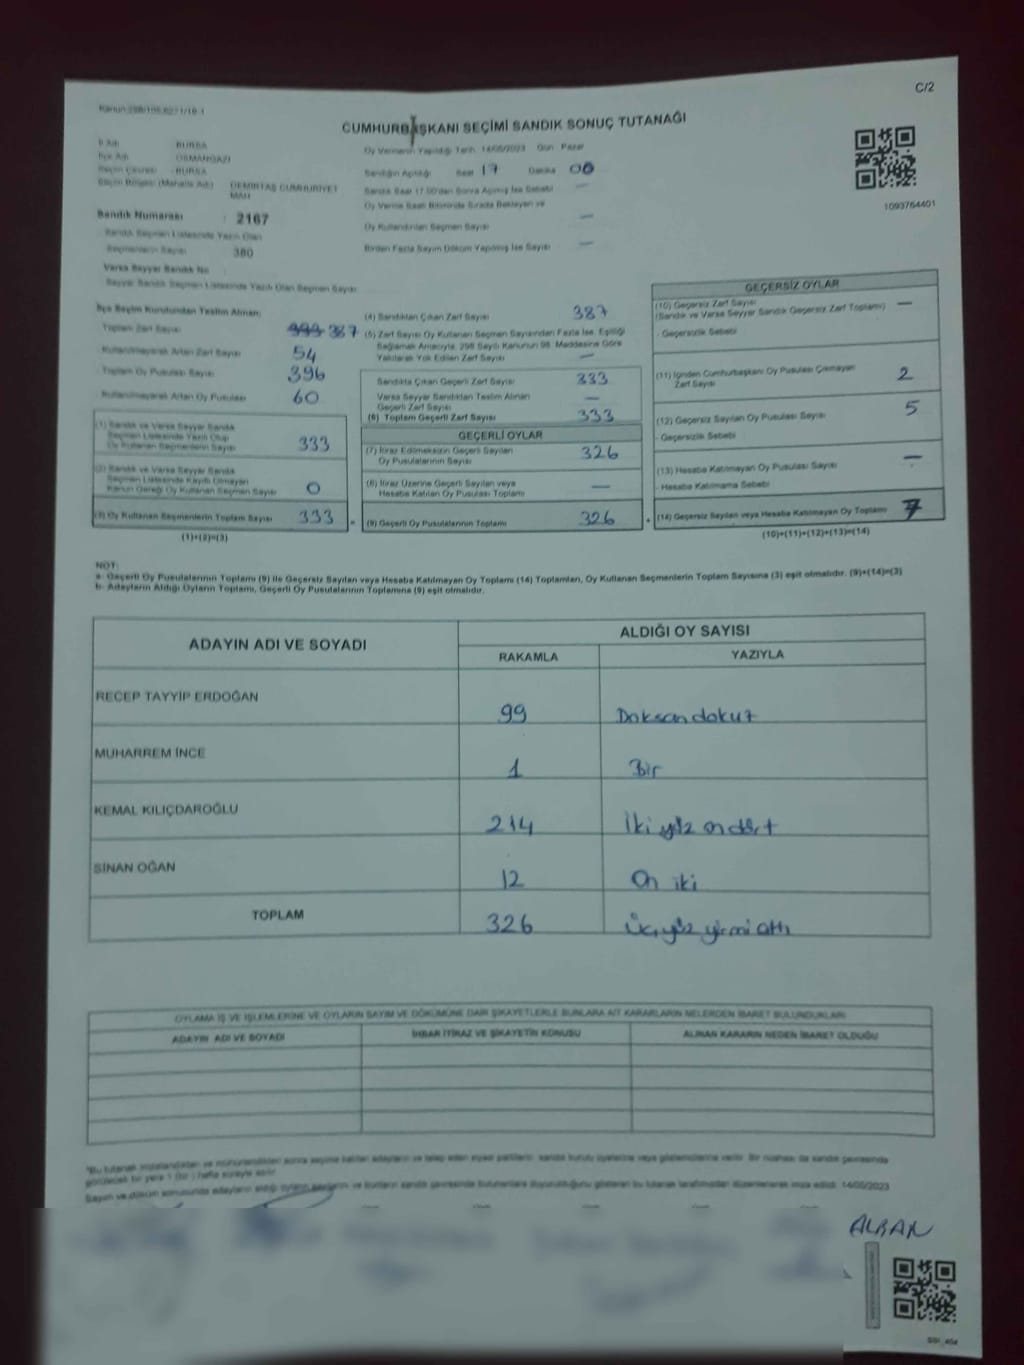 C/2
CUMHURBAŞKANI SEÇİMİ SANDIK SONUÇ TUTANAĞI
İl Adı : BURSA
Oy Vermenin Yapıldığı Tarih 14/05/2023 Gün Pazar
İlçe Adı : OSMANGAZİ
Seçim Çevresi : BURSA
Sandığın Açıldığı Saat 17 Dakika 00
Seçim Bölgesi (Mahalle Adı) : DEMİRTAŞ CUMHURİYET MAH
Sandık Saat 17.00'den Sonra Açılmış İse Sebebi —
1093764401
Oy Verme Saati Bitiminde Sırada Bekleyen ve
Oy Kullandırılan Seçmen Sayısı —
Sandık Numarası : 2167
Sandık Seçmen Listesinde Yazılı Olan
Seçmenlerin Sayısı 380
Birden Fazla Sayım Döküm Yapılmış İse Sayısı —
Varsa Seyyar Sandık No
Seyyar Sandık Seçmen Listesinde Yazılı Olan Seçmen Sayısı
İlçe Seçim Kurulundan Teslim Alınan;
Toplam Zarf Sayısı 387
Kullanılmayarak Artan Zarf Sayısı 54
Toplam Oy Pusulası Sayısı 396
Kullanılmayarak Artan Oy Pusulası 60
(1) Sandık ve Varsa Seyyar Sandık
Seçmen Listesinde Yazılı Olup
Oy Kullanan Seçmenlerin Sayısı 333
(2) Sandık ve Varsa Seyyar Sandık
Seçmen Listesinde Kayıtlı Olmayan
Kanun Gereği Oy Kullanan Seçmen Sayısı 0
(3) Oy Kullanan Seçmenlerin Toplam Sayısı 333
(1)+(2)=(3)
(4) Sandıktan Çıkan Zarf Sayısı 387
(5) Zarf Sayısı Oy Kullanan Seçmen Sayısından Fazla İse, Eşitliği
Sağlamak Amacıyla, 298 Sayılı Kanunun 98. Maddesine Göre
Yakılarak Yok Edilen Zarf Sayısı —
Sandıkta Çıkan Geçerli Zarf Sayısı 333
Varsa Seyyar Sandıktan Teslim Alınan
Geçerli Zarf Sayısı —
(6) Toplam Geçerli Zarf Sayısı 333
GEÇERLİ OYLAR
(7) İtiraz Edilmeksizin Geçerli Sayılan
Oy Pusulalarının Sayısı 326
(8) İtiraz Üzerine Geçerli Sayılan veya
Hesaba Katılan Oy Pusulası Toplamı —
(9) Geçerli Oy Pusulalarının Toplamı 326
GEÇERSİZ OYLAR
(10) Geçersiz Zarf Sayısı —
(Sandık ve Varsa Seyyar Sandık Geçersiz Zarf Toplamı)
- Geçersizlik Sebebi
(11) İçinden Cumhurbaşkanı Oy Pusulası Çıkmayan
Zarf Sayısı 2
(12) Geçersiz Sayılan Oy Pusulası Sayısı 5
- Geçersizlik Sebebi
(13) Hesaba Katılmayan Oy Pusulası Sayısı —
- Hesaba Katılmama Sebebi
(14) Geçersiz Sayılan veya Hesaba Katılmayan Oy Toplamı 7
(10)+(11)+(12)+(13)=(14)
NOT:
a- Geçerli Oy Pusulalarının Toplamı (9) ile Geçersiz Sayılan veya Hesaba Katılmayan Oy Toplamı (14) Toplamları, Oy Kullanan Seçmenlerin Toplam Sayısına (3) eşit olmalıdır. (9)+(14)=(3)
b- Adayların Aldığı Oyların Toplamı, Geçerli Oy Pusulalarının Toplamına (9) eşit olmalıdır.
ADAYIN ADI VE SOYADI
ALDIĞI OY SAYISI
RAKAMLA YAZIYLA
RECEP TAYYİP ERDOĞAN 99 Doksan dokuz
MUHARREM İNCE 1 Bir
KEMAL KILIÇDAROĞLU 214 İki yüz on dört
SİNAN OĞAN 12 On iki
TOPLAM 326 Üç yüz yirmi altı
OYLAMA İŞ VE İŞLEMLERİNE VE OYLARIN SAYIM VE DÖKÜMÜNE DAİR ŞİKAYETLERLE BUNLARA AİT KARARLARIN NELERDEN İBARET BULUNDUKLARI
ADAYIN ADI VE SOYADI İHBAR İTİRAZ VE ŞİKAYETİN KONUSU ALINAN KARARIN NEDEN İBARET OLDUĞU
*Bu tutanak imzalandıktan ve mühürlendikten sonra seçime katılan adayların ve talep eden siyasi partilerin sandık kurulu üyelerine veya gözlemcilerine verilir. Bir nüshası da sandık çevresinde
görülecek bir yere 1 (bir) hafta süreyle asılır.
Sayım ve döküm sonucunda adayların aldığı oyların sayılarını ve bunların sandık çevresinde bulunanlara duyurulduğunu gösteren bu tutanak tarafımızdan düzenlenerek imza edildi. 14/05/2023
ALBAN